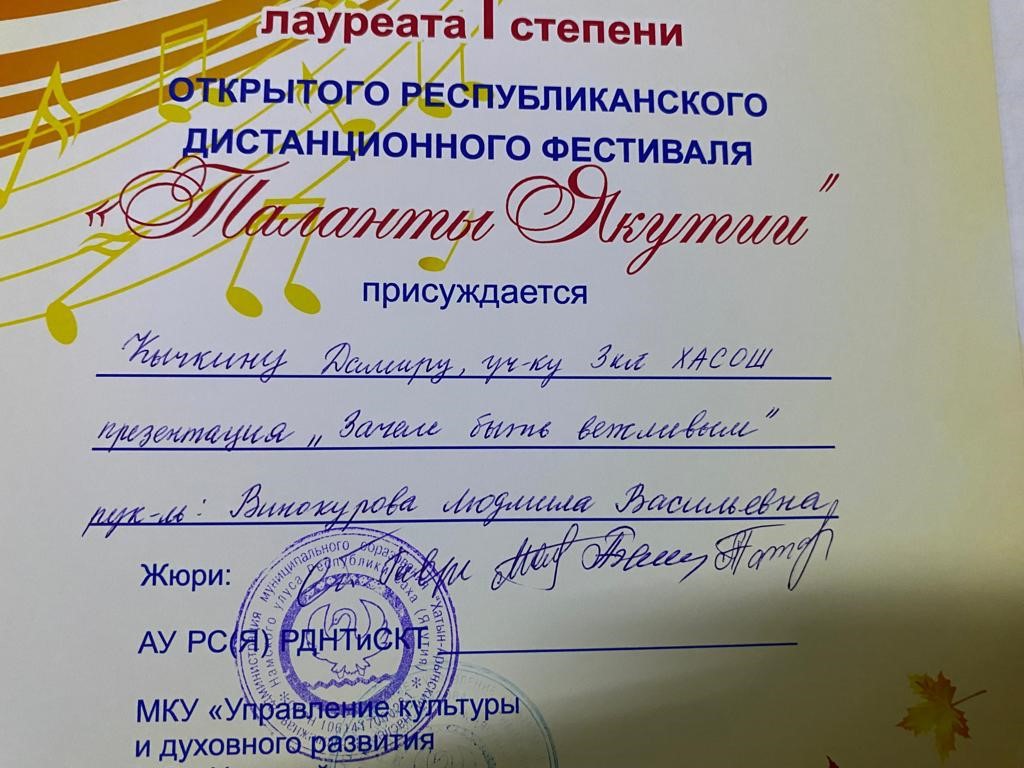 лауреата I степени
ОТКРЫТОГО РЕСПУБЛИКАНСКОГО
ДИСТАНЦИОННОГО ФЕСТИВАЛЯ
«Таланты Якутии"
присуждается
Кычкину Дамиру, уч-ку 3кл ХАСОШ
презентация „Зачем быть вежливым"
рук-ль: Винокурова Людмила Васильевна
Жюри:
АУ РС(Я) РДНТиСКТ
МКУ «Управление культуры
и духовного развития
Администрация муниципального образования "Хатын-Арынский
Намского улуса Республики Саха (Якутия)